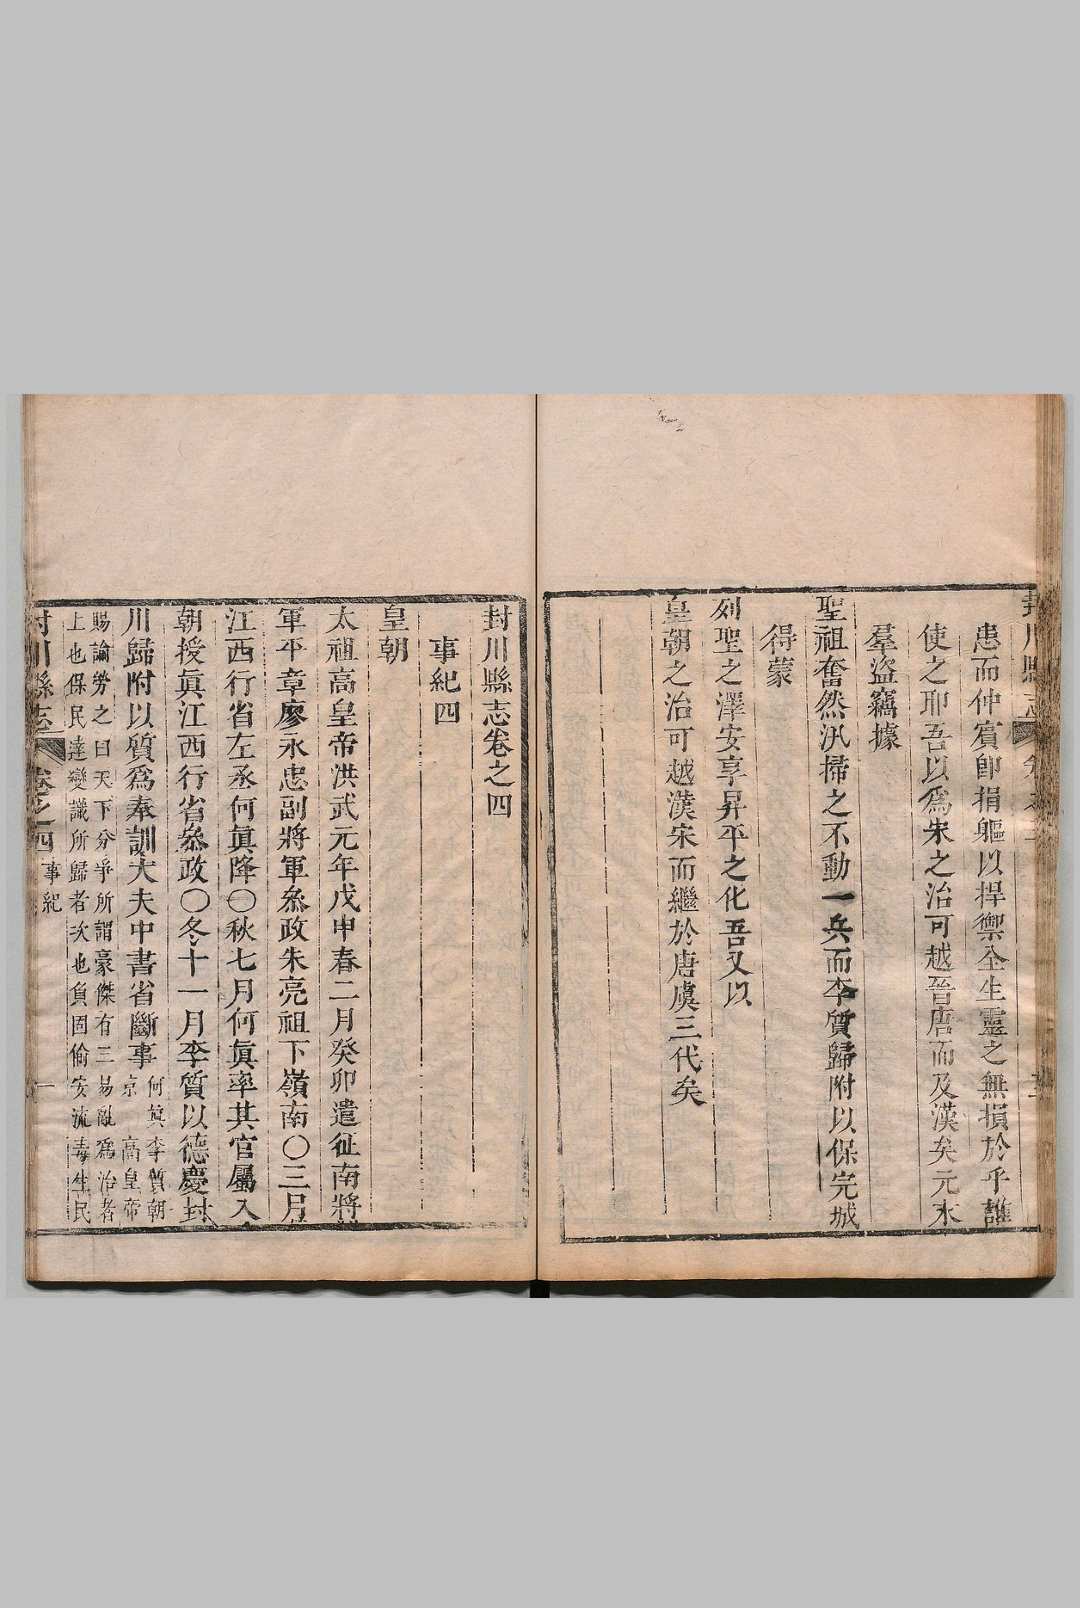 患而仲賔卽捐軀以捍禦全生靈之無損於乎誰
使之耶吾以爲宋之治可越晉唐而及漢矣元末
羣盜竊據
聖祖奮然汎掃之不動一兵而李質歸附以保完城
得蒙
列聖之澤安享昇平之化吾又以
皇朝之治可越漢宋而繼於唐虞三代矣
封川縣志卷之四
事紀四
皇朝
太祖高皇帝洪武元年戊申春二月癸卯遣征南將
軍平章廖永忠副將軍叅政朱亮祖下嶺南〇三月
江西行省左丞何眞降〇秋七月何眞率其官屬入
朝授眞江西行省叅政〇冬十一月李質以德慶封
川歸附以質爲奉訓大夫中書省斷事
何眞李質朝
京 高皇帝
賜諭勞之曰天下分爭所謂豪傑有三易亂爲治者
上也保民達變識所歸者次也負固偷安流毒生民
封川縣志 卷之四 事紀 一